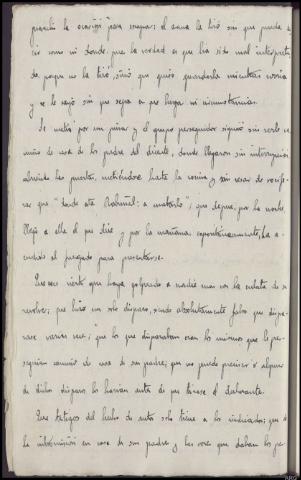 ocasión para escapar; el arma la tiró sin que pueda de-
cir como ni donde, que la verdad es que ha sido mal interpreta-
da, porque no la tiró, sinó que quiso guardarla mientras corria
y se le cayó sin que sepa en que lugar ni circunstancias.
Se metió por un pinar y el grupo perseguidor siguió sin verle
de casa de los padres del dicente, donde llegaron sin interrupción
abriendo las puertas, metiéndose hasta la cocina y sin cesar de vocife-
rar que "donde está a matarlo"; que después, por la noche,
llegó a ella el que dice y por la mañana espontáneamente, ha a-
cudido al juzgado para presentarse.
Que sea cierto que haya golpeado a nadie mas con la culata de su
revolver; que hizo un solo disparo, siendo absolutamente falso que dispa-
rase varias veces; que los que disparaban eran los mismos que le per-
seguian camino de casa de sus padres; que no puede precisar si alguno
de dichos disparos los harian antes de que tirase el declarante.
Que testigos del hecho de autos solo tiene a los indicados; que de
la intromisión en casa de sus padres y las voces que daban los pe-